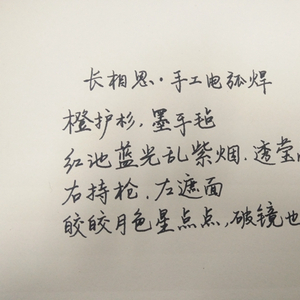 长相思·手工电弧焊
橙护衫,墨手毡
红池蓝光乱紫烟.透莹
右持枪.左遮面
皎皎月色星点点,破镜也